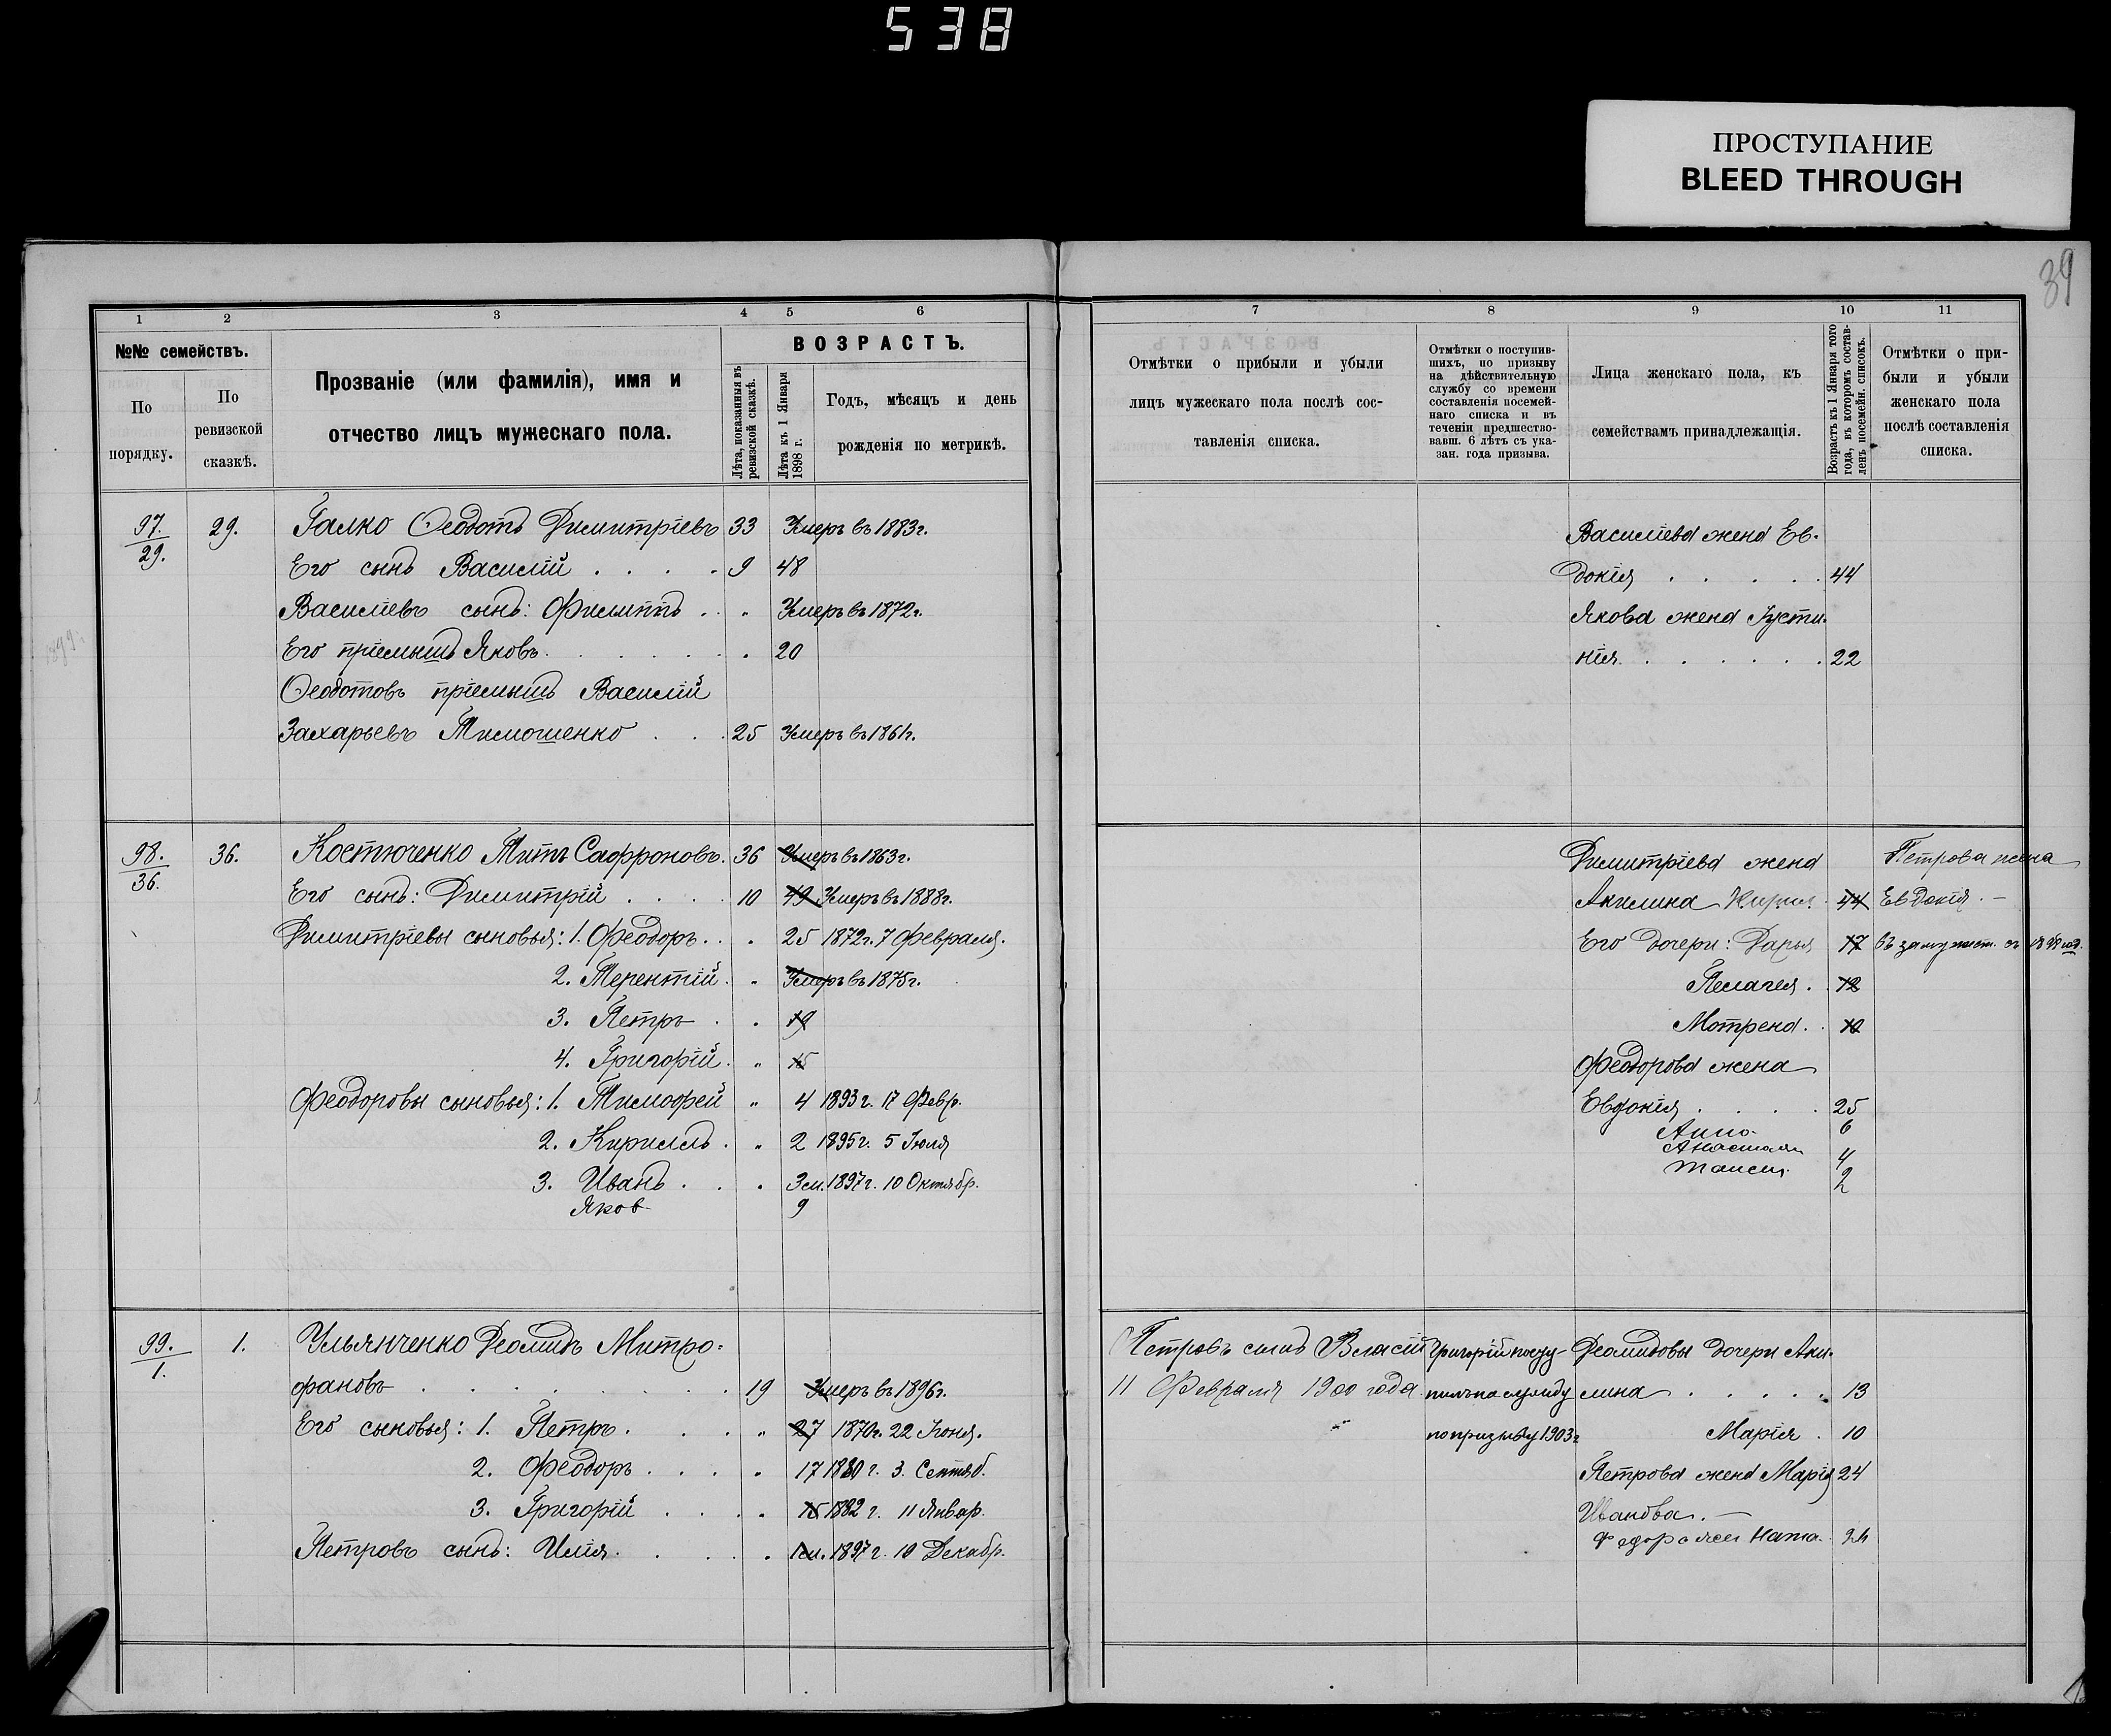 538
ПРОСТУПАНИЕ
BLEED THROUGH
39
1 2 3 4 5 6
№№ семействъ.
По порядку.
По ревизской сказкѣ.
Прозваніе (или фамилія), имя и
отчество лицъ мужескаго пола.
ВОЗРАСТЪ.
Лѣта, показанныя въ ревизской сказкѣ.
Лѣта къ 1 Января 1898 г.
Годъ, мѣсяцъ и день
рожденія по метрикѣ.
97. 29. Галко Ѳеодотъ Димитріевъ 33 Умеръ въ 1883г.
29. Его сынъ Василій . . . . 9 48
Василіевъ сынъ: Филиппъ . . „ Умеръ въ 1872г.
Его пріемышъ Яковъ . . . . . 20
Ѳеодотовъ пріемышъ Василій
Захарьевъ Тимошенко . . . 25 Умеръ въ 1861г.
98. 36. Костюченко Титъ Сафроновъ. 36 Умеръ въ 1863г.
36. Его сынъ: Димитрій . . . . 10 49 Умеръ въ 1888г.
Димитріевы сыновья: 1. Феодоръ . . . 25 1872г. 7 Февраля.
2. Терентій . „ Умеръ въ 1875г.
3. Петръ . . 19
4. Григорій . „ 15
Феодоровы сыновья: 1. Тимофей „ 4 1893г. 17 Февр.
2. Кириллъ . „ 2 1895г. 5 Іюля
3. Иванъ . . . 3м. 1897г. 10 Октябр.
Яков 9
99. 1. Ульянченко Деомидъ Митро-
1. фановъ . . . . . . . . 19 Умеръ въ 1896г.
Его сыновья: 1. Петръ . . . „ 27 1870г. 22 Іюня.
2. Феодоръ . . . . 17 1880г. 3. Сентяб.
3. Григорій . . . . 15 1882г. 11 Январ.
Петровъ сынъ: Илія . . . . . 1м. 1897г. 10 Декабр.
7 8 9 10 11
Отмѣтки о прибыли и убыли
лицъ мужескаго пола послѣ сос-
тавленія списка.
Отмѣтки о поступив-
шихъ, по призыву
на дѣйствительную
службу со времени
составленія посемей-
наго списка и въ
теченіи предшество-
вавш. 6 лѣтъ съ ука-
зан. года призыва.
Лица женскаго пола, къ
семействамъ принадлежащія.
Возрастъ къ 1 Января того
года, въ которомъ состав-
ленъ посемейн. списокъ.
Отмѣтки о при-
были и убыли
женскаго пола
послѣ составленія
списка.
Василіева жена Ев-
докія . . . . . 44
Якова жена Густи-
нія . . . . . . 22
Димитріева жена Петрова жена
Акилина 44 Евдокія. –
Его дочери: Дарья 17
Пелагея . 12
Мотрена . . 10
Феодорова жена
Евдокія . . . . 25
Анна 6
Анастасія 4
Таисия 2
Петровъ сынъ Власій Григорій посту- Деомидовы дочери Аки-
11 Февраля 1900 года пилъ на службу лина . . . . . 13
по призыву 1903г Марія . 10
Петрова жена Марія 24
Иванова. –
24